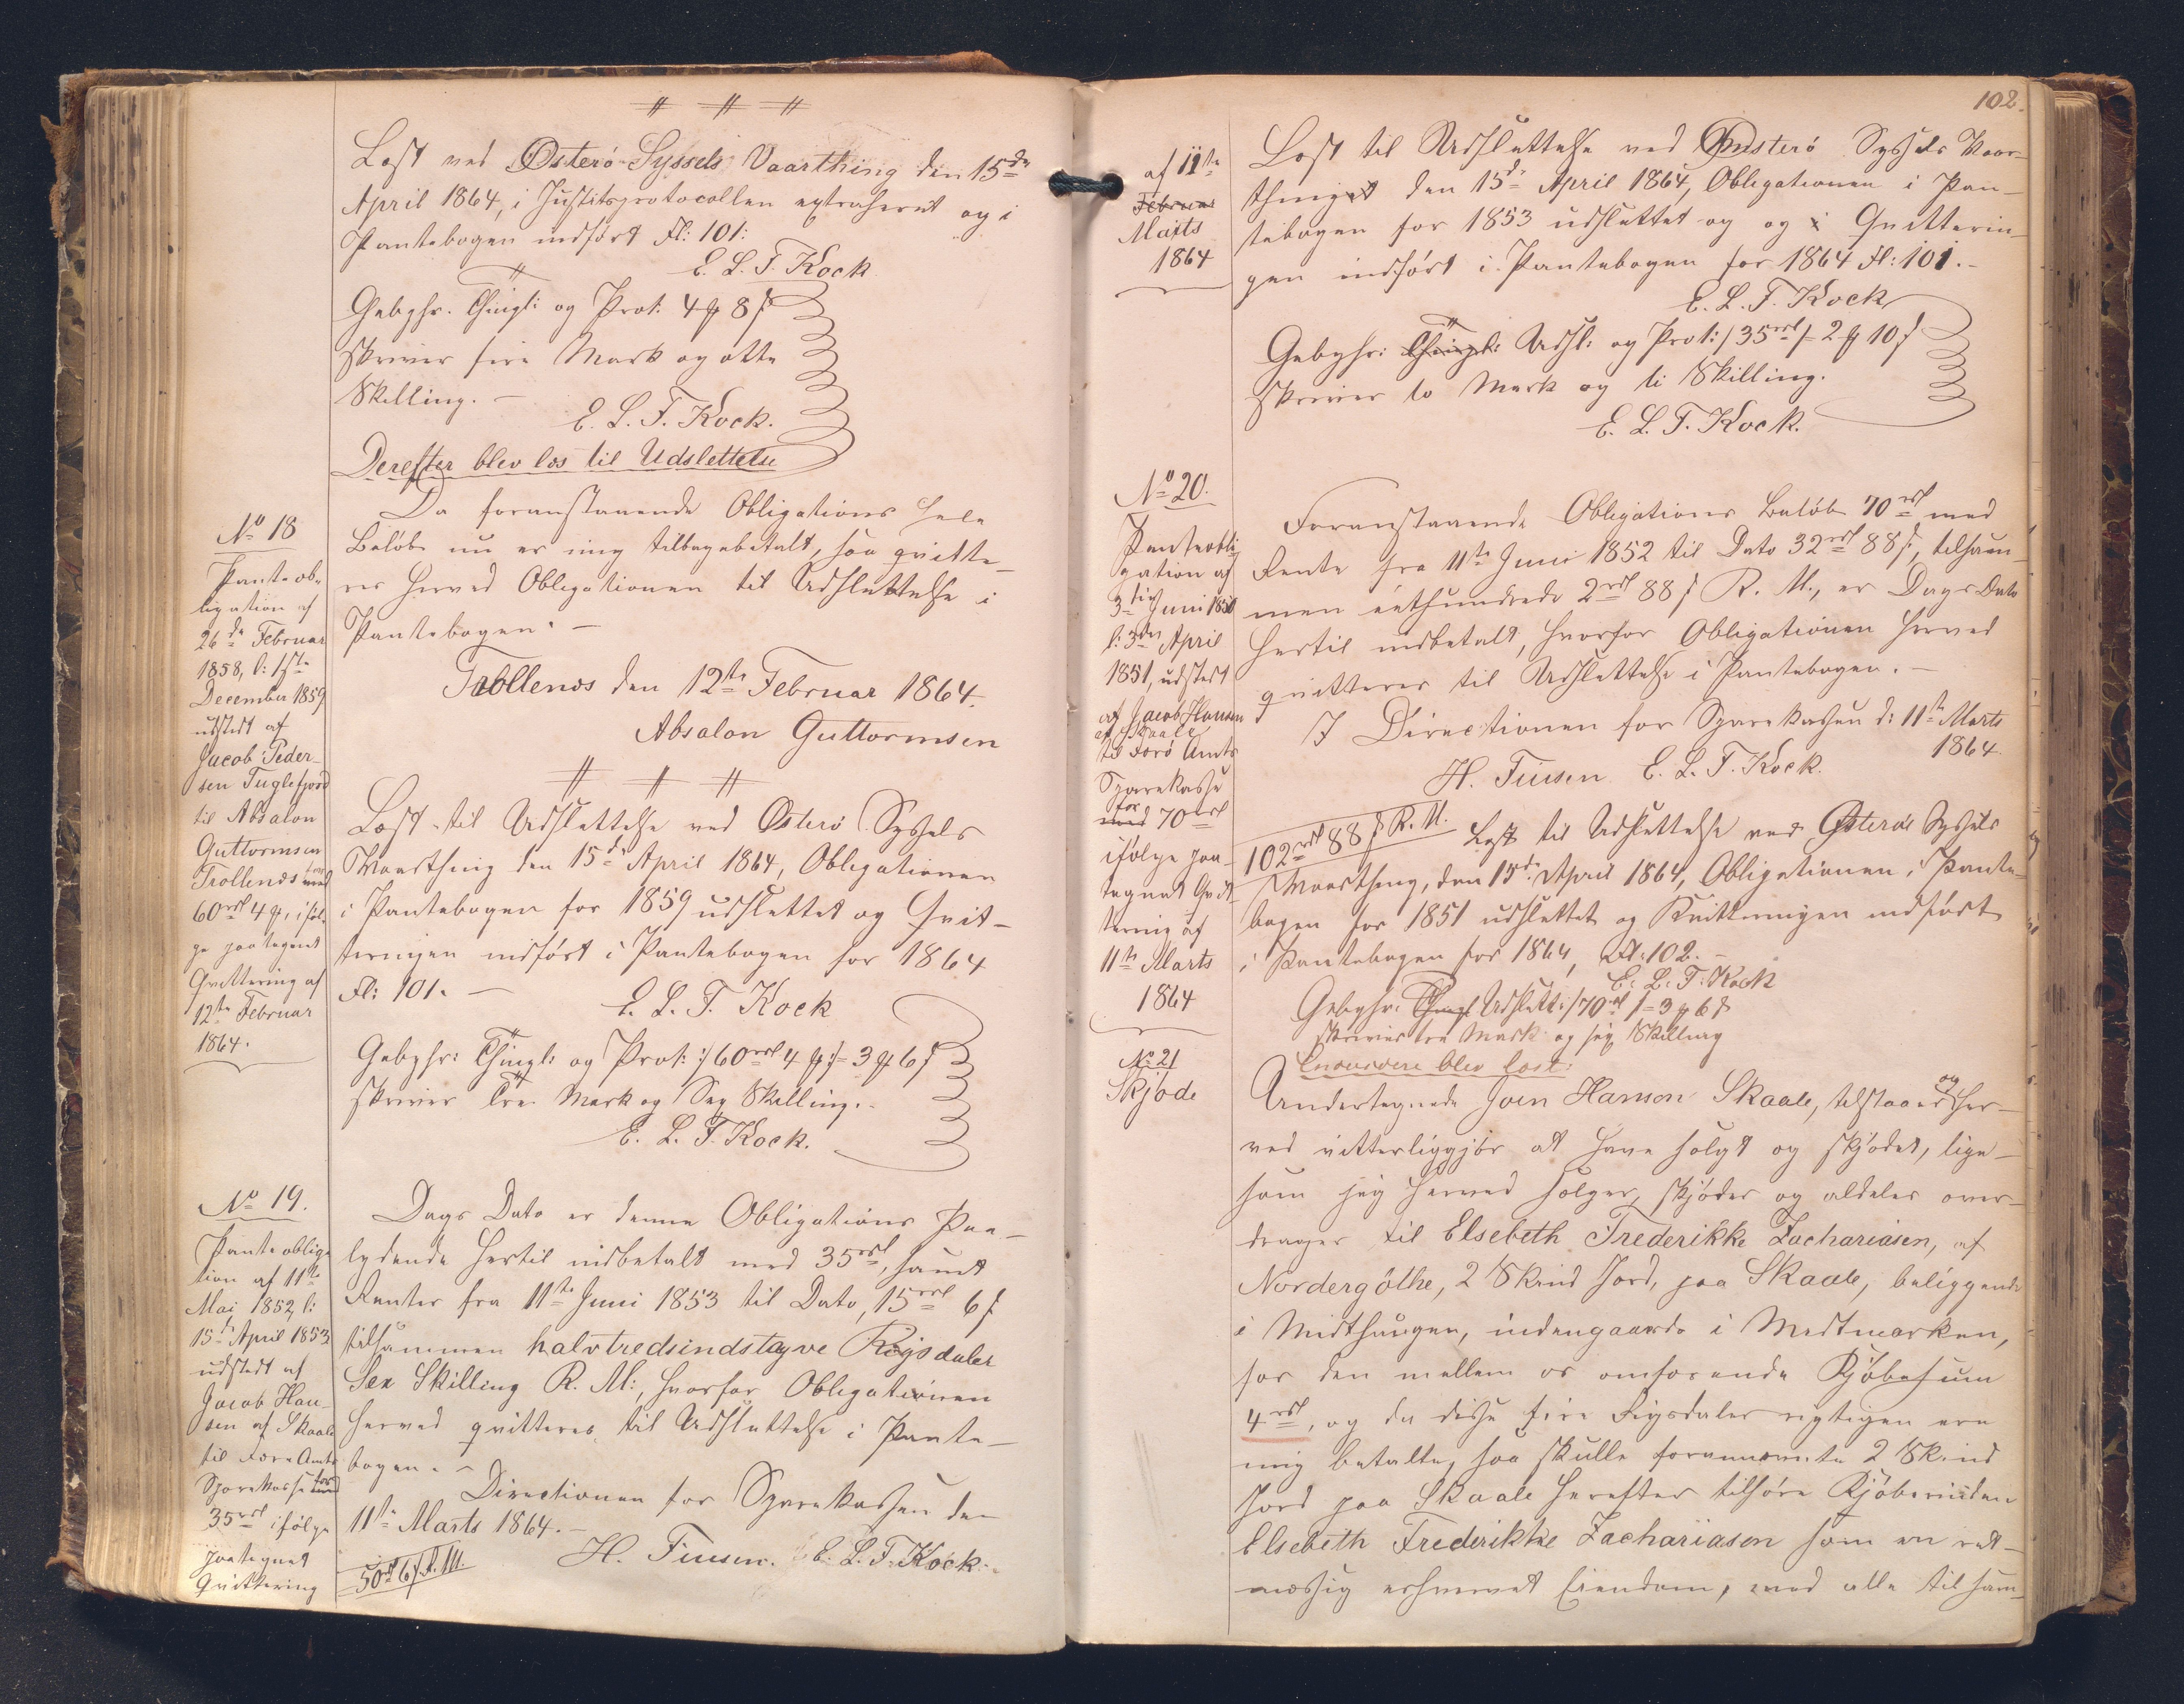 Læst ved Österö Syssels Vaarthing den 15de
April 1864, i Justitsprotocollen extraheret og i
Pantebogen indført Fl: 101:
E. L. T. Kock
Gebyhr. Thingl: og Prot: 4 ₰ 8 ſ
skriver fire Mark og otte
Skilling. —
E. L. T. Kock.
Derefter blev læs til Udslettelse
No 18
Panteob-
ligation af
26de Februar
1858, l: 1ste
December 1859
udstedt af
Jacob Peder-
sen Fuglefjord
til Absalon
Guttormsen
Trollenæs med for
60 rdl 4 ₰, iføl-
ge paategnet
Qvittering af
12te Februar
1864.
Da foranstaaende Obligations hele
Beløb nu er mig tilbagebetalt, saa qvitte-
res herved Obligationen til Udslettelse i
Pantebogen. —
Trollenæs den 12te Februar 1864.
Absalon Guttormsen
Læst til Udslettelse ved Österö Syssels
Vaarthing den 15de April 1864, Obligationen
i Pantebogen for 1859 udslettet og Qvit-
teringen indført i Pantebogen for 1864
Fl: 101. —
E. L. T. Kock
Gebyhr: Thingl: og Prot: /: 60 rdl 4 ₰ :/ 3 ₰ 6 ſ
skriver Tre Mark og Sex Skilling. -
E. L. T. Kock.
No 19.
Panteobliga
tion af 11te
Mai 1852, l:
15de April 1853
udstedt af
Jacob Han-
sen af Skaale
til Færø Amts
Sparekasse med for
35 rdl ifølge
paategnet
Qvittering
Dags Dato er denne Obligations Paa-
lydende hertil indbetalt med 35 rdl, samt
Renter fra 11te Juni 1853 til Dato, 15 rdl 6 ſ
tilsammen halvtredsindstyve Rigsdaler
Sex Skilling R. M:, hvorfor Obligationen
herved qvitteres til Udslettelse i Pante-
bogen. -
Directionen for Sparekassen den
11te Marts 1864. -
50 rdl 6 ſ R. M.
H. Finsen. E. L. T. Kock.
102.
af 11te
Februar
Marts
1864
Læst til Udslettelse ved Österö Syssels Vaar-
thinget den 15de April 1864, Obligationen i Pan-
tebogen for 1853 udslettet og og i Qvitterin-
gen indført i Pantebogen for 1864 Fl: 101. -
E. L. T. Kock
Gebyhr: Thingl: Udsl: og Prot: / 35 rdl / 2 ₰ 10 ſ
skriver to Mark og ti Skilling.
E. L. T. Kock.
No 20.
Panteobli
gation af
3die Juni 1850
l: 3die April
1851, udstedt
af Jacob Hansen
af Skaale
til Færö Amts
Sparekasse
for
med 70 rdl
ifølge paa-
tegnet Qvit-
tering af
11te Marts
1864
Foranstaaende Obligations Beløb 70 rdl med
Rente fra 11te Juni 1852 til Dato 32 rdl 88 ſ, tilsam-
men eethundrede 2 rdl 88 ſ R. M., er Dags Dato
hertil indbetalt, hvorfor Obligationen herved
qvitteres til Udslettelse i Pantebogen. —
I Directionen for Sparekassen d: 11te Marts
1864.
H. Finsen E. L. T. Kock.
102 rdl 88 ſ R. M.
Læst til Udslettelse ved Österö Syssels
Vaarthing, den 15de April 1864, Obligationen i Pante-
bogen for 1851 udslettet og Kvitteringen indført
i Pantebogen for 1864, Fl: 102. -
E. L. T. Kock
Gebyhr. Thingl Udslett: / 70 rdl / 3 ₰ 6 ſ
skriver tre Mark og sex Skilling
No 21
Skjøde
Endvidere blev læst:
Undertegnede Joen Hanson Skaale, tilstaaer og her-
ved vitterliggjør at have solgt og skjødet, lige-
som jeg herved sælger, skjøder og aldeles over-
drager til Elsebeth Frederikke Zachariasen, af
Nordergøthe, 2 Skind Jord, paa Skaale, beliggende
i Midthaugen, indengaards i Midtmarken,
for den mellem os omforende Kjøbesum
4 rdl, og da disse fire Rigsdaler rigtigen ere
mig betalte, saa skulle forannævnte 2 Skind
Jord paa Skaale herefter tilhøre Kjøberinden
Elsebeth Frederikke Zachariasen som en ret-
mæssig erhvervet Eiendom, med alle tilhør-